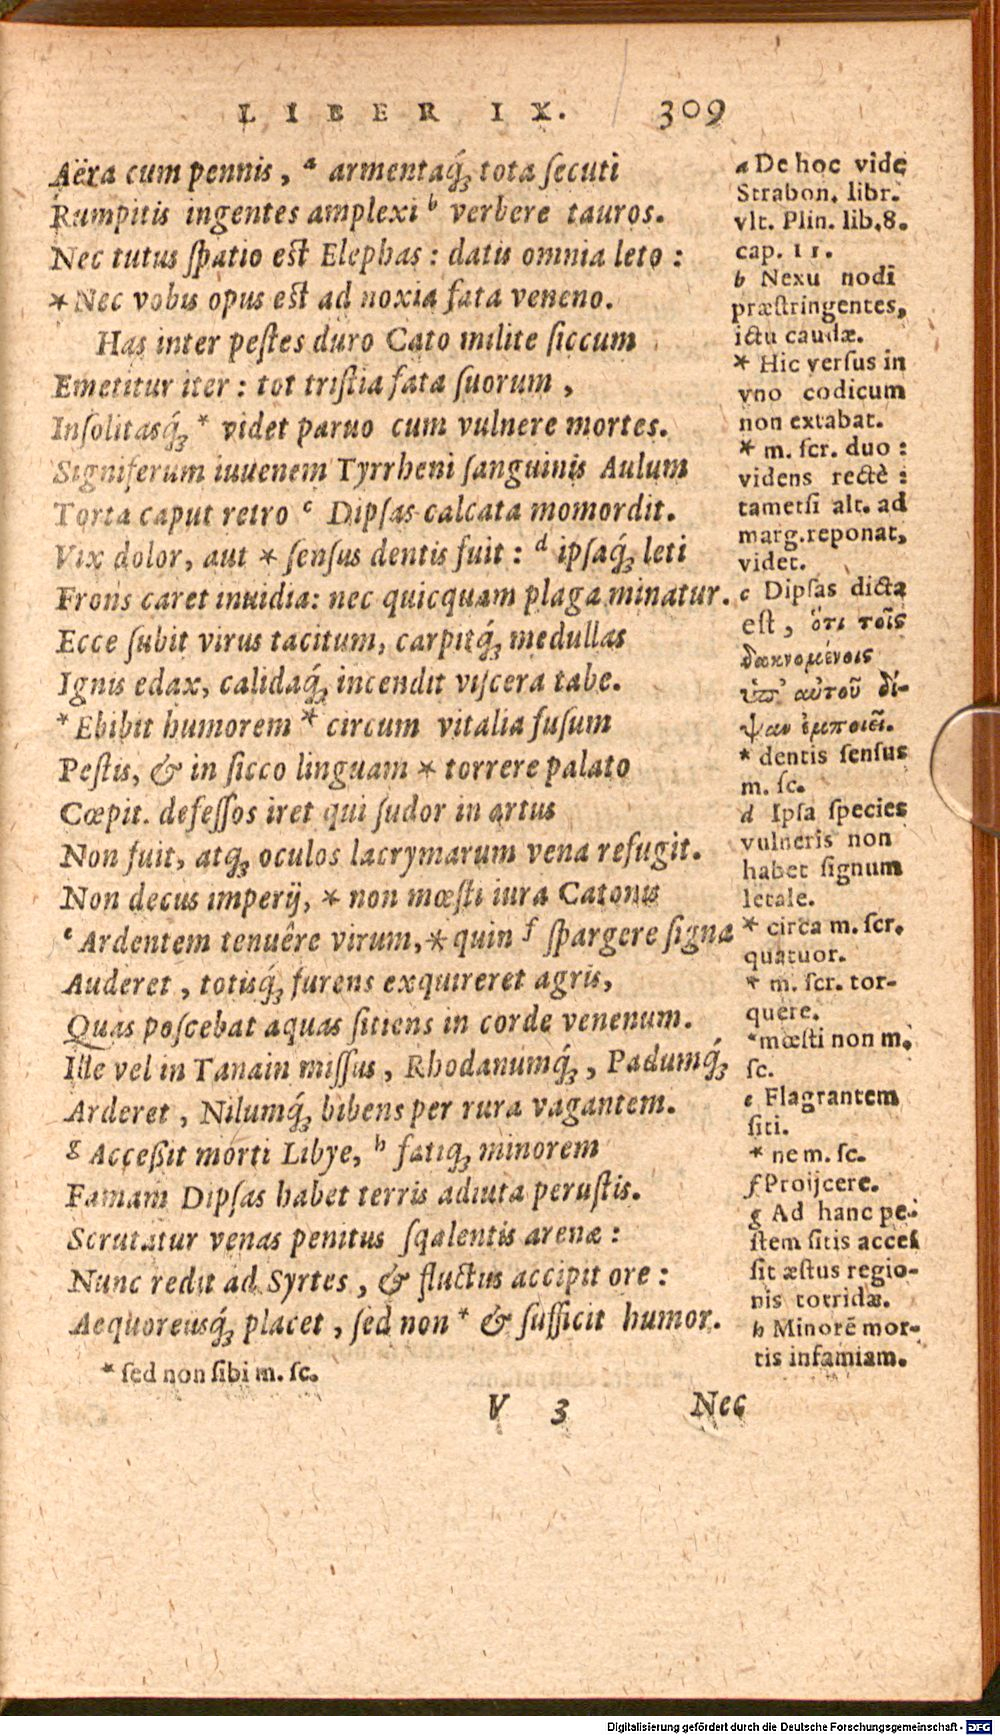 LIBER IX. 309
Aëra cum pennis, a armentaq́; tota ſecuti
Rumpitis ingentes amplexi b verbere tauros.
Nec tutus ſpatio eſt Elephas: datis omnia leto:
* Nec vobis opus eſt ad noxia fata veneno.
Has inter peſtes duro Cato milite ſiccum
Emetitur iter: tot triſtia fata ſuorum,
Inſolitasq́; * videt paruo cum vulnere mortes.
Signiferum iuuenem Tyrrheni ſanguinis Aulum
Torta caput retro c Dipſas calcata momordit.
Vix dolor, aut * ſenſus dentis fuit: d ipſaq́; leti
Frons caret inuidia: nec quicquam plaga minatur.
Ecce ſubit virus tacitum, carpitq́; medullas
Ignis edax, calidaq́; incendit viſcera tabe.
* Ebibit humorem * circum vitalia fuſum
Peſtis, & in ſicco linguam * torrere palato
Cœpit. defeſſos iret qui ſudor in artus
Non fuit, atq; oculos lacrymarum vena refugit.
Non decus imperij, * non mœſti iura Catonis
e Ardentem tenuêre virum, * quin f ſpargere ſigna
Auderet, totisq́; furens exquireret agris,
Quas poſcebat aquas ſitiens in corde venenum.
Ille vel in Tanain miſſus, Rhodanumq́;, Padumq́;
Arderet, Nilumq́; bibens per rura vagantem.
g Acceßit morti Libye, h fatiq; minorem
Famam Dipſas habet terris adiuta peruſtis.
Scrutatur venas penitus ſqalentis arenæ:
Nunc redit ad Syrtes, & fluctus accipit ore:
Aequoreusq́; placet, ſed non * & ſufficit humor.
* ſed non ſibi m. ſc.
V 3 Nec
a De hoc vide
Strabon. libr.
vlt. Plin. lib.8.
cap. 11.
b Nexu nodi
præſtringentes,
ictu caudæ.
* Hic verſus in
vno codicum
non extabat.
* m. ſcr. duo:
videns rectè:
tametſi alt. ad
marg. reponat,
videt.
c Dipſas dicta
eſt, ὅτι τοῖς
δακνομένοις
ὑπ' αὐτοῦ δί-
ψαν ἐμποιεῖ.
* dentis ſenſus
m. ſc.
d Ipſa ſpecies
vulneris non
habet ſignum
letale.
* circa m. ſcr.
quatuor.
* m. ſcr. tor-
quere.
* mœſti non m.
ſc.
e Flagrantem
ſiti.
* ne m. ſc.
f Proijcere.
g Ad hanc pe-
ſtem ſitis acceſ
ſit æſtus regio-
nis torridæ.
h Minorē mor-
tis infamiam.
Digitalisierung gefördert durch die Deutsche Forschungsgemeinschaft - DFG